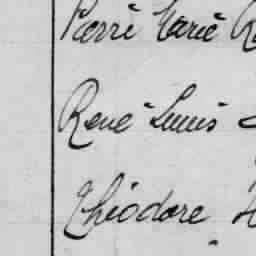 Pierre Marie
René Louis
Théodore